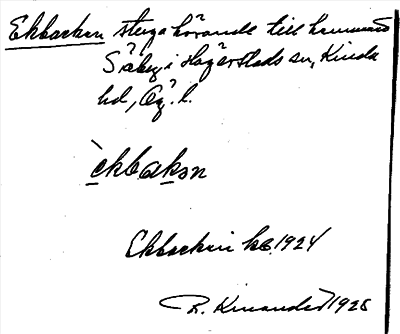 Ekbacken stuga hörande till hemmanet
Säby i Hägerstads sn, Kinda
hd, Ög. l.
èkbakən
Ekbacken kb. 1924
R. Kinander 1925